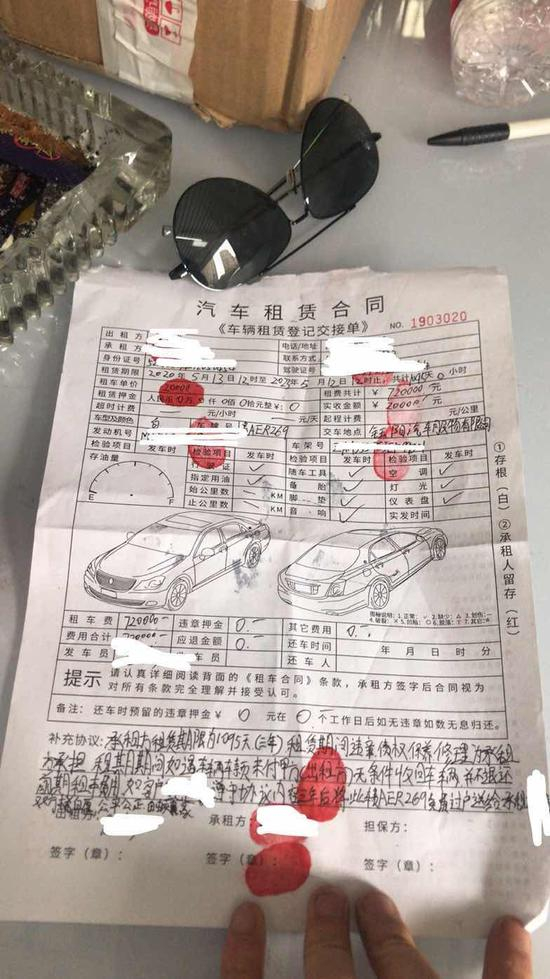 汽车租赁合同
《车辆租赁登记交接单》 NO. 1903020
出租方 电话/地址
承租方 联系方式
身份证号 驾驶证号
租赁期限 2020年5月13日12时至2023年5月12日12时止，共计1095天0小时
租车单价 20000 租费共计 ¥720000元
租赁押金 人民币0万 仟0佰0拾元整¥：0 实收金额 ¥20000元
超时计费 元/小时 元/天 起程计费 元/公里
车型及颜色 白 车牌号 AER269 交车地点
发动机号 车架号
检验项目 发车时 检验项目 发车时 检验项目 发车时 检验项目 发车时
存油量 证 ✓ 随车工具 ✓ 空调 ✓
指定用油 ✓ 备胎 ✓ 灯光 ✓
始公里数 KM 脚垫 ✓ 仪表盘 ✓
止公里数 KM 音响 ✓ 实发时间
E F
①存根（白）②承租人留存（红）
图稿说明：1.正常：✓ 2.缺少：△ 3.划伤：—
4.破裂：✕ 5.凹陷：○ 6.脱落： 7.其它：
租车费 720000 违章押金 0.- 其它费用 0.-
费用合计 应退金额 0.- 还车时间 年 月 日 时 分
发车员 车员 还车人
提示 请认真详细阅读背面的《租车合同》条款，承租方签字后合同视为
对所有条款完全理解并接受认可。
备注：还车时预留的违章押金¥ 0 元在 0 个工作日后如无违章如数无息归还。
补充协议：承租方租赁期限为1095天（三年）租赁期间违章债权保养修理为承租
方承担，租赁期间如遇车辆 未付 （出租方）无条件收回车辆并不退还
前期租车费用， 遵守协议内容三年后将此车辆AER269免费过户送给承租
公平公正
承租方： 担保方：
签字（章）： 签字（章）： 签字（章）：